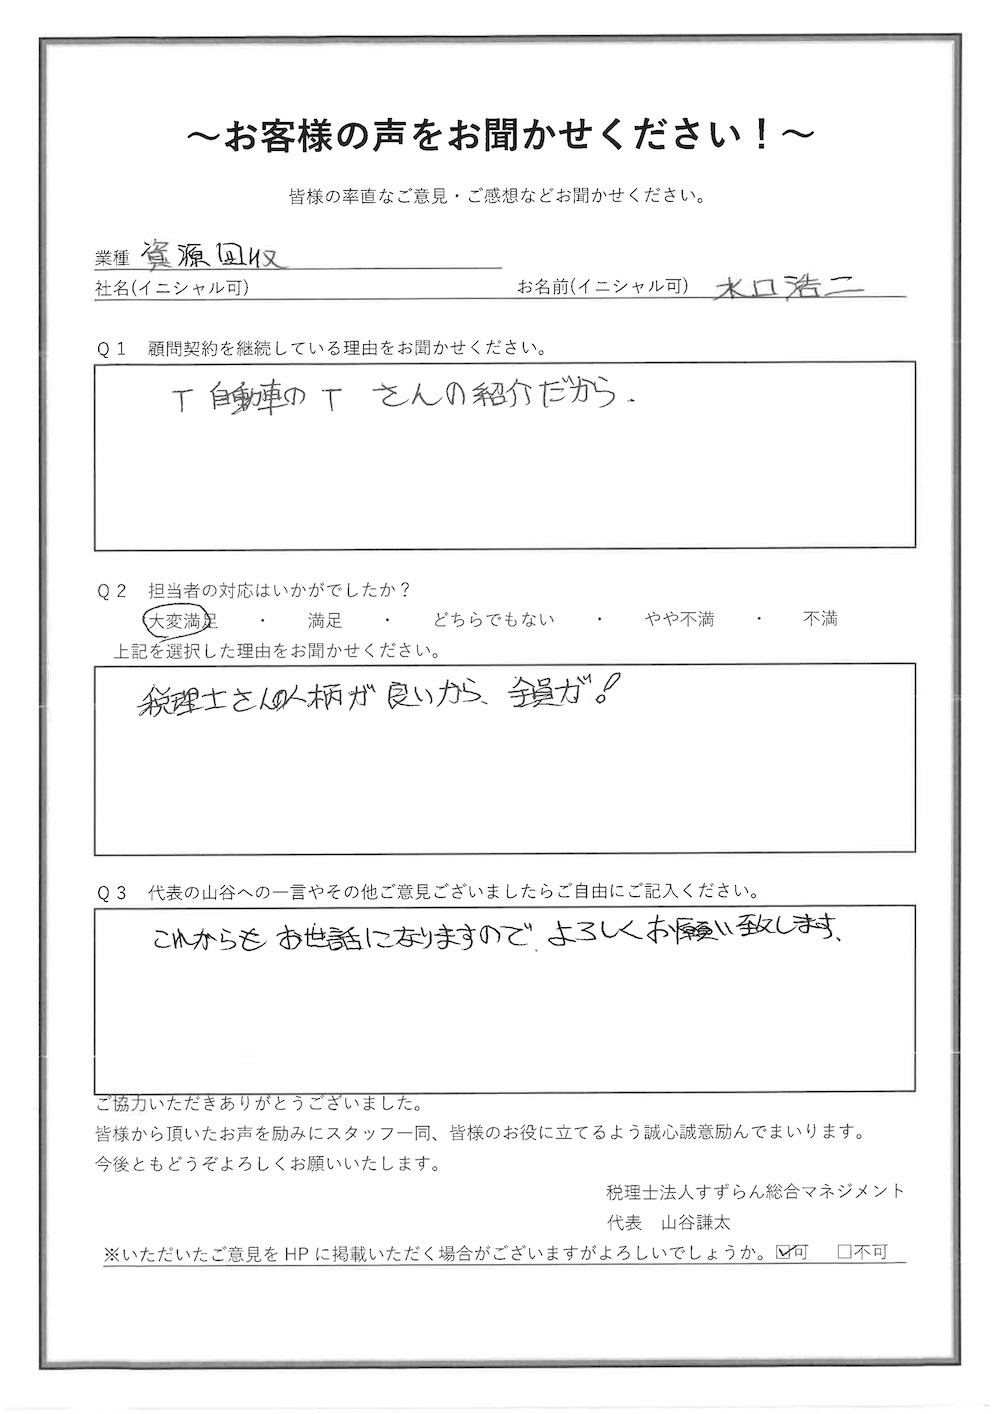 ～お客様の声をお聞かせください！～
皆様の率直なご意見・ご感想などお聞かせください。
業種 資源回収
社名(イニシャル可)　お名前(イニシャル可) 水口浩二
Q1　顧問契約を継続している理由をお聞かせください。
T 自動車の T さんの紹介だから.
Q2　担当者の対応はいかがでしたか？
大変満足　・　満足　・　どちらでもない　・　やや不満　・　不満
上記を選択した理由をお聞かせください。
税理士さんの人柄が良いから、全員が！
Q3　代表の山谷への一言やその他ご意見ございましたらご自由にご記入ください。
これからもお世話になりますので、よろしくお願い致します、
ご協力いただきありがとうございました。
皆様から頂いたお声を励みにスタッフ一同、皆様のお役に立てるよう誠心誠意励んでまいります。
今後ともどうぞよろしくお願いいたします。
税理士法人すずらん総合マネジメント
代表　山谷謙太
※いただいたご意見をHPに掲載いただく場合がございますがよろしいでしょうか。☑可　□不可